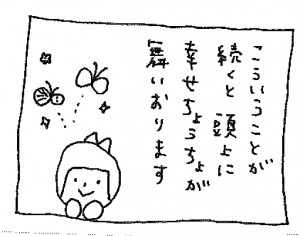 こういうことが
続くと頭上に
幸せちょうちょが
舞いおります